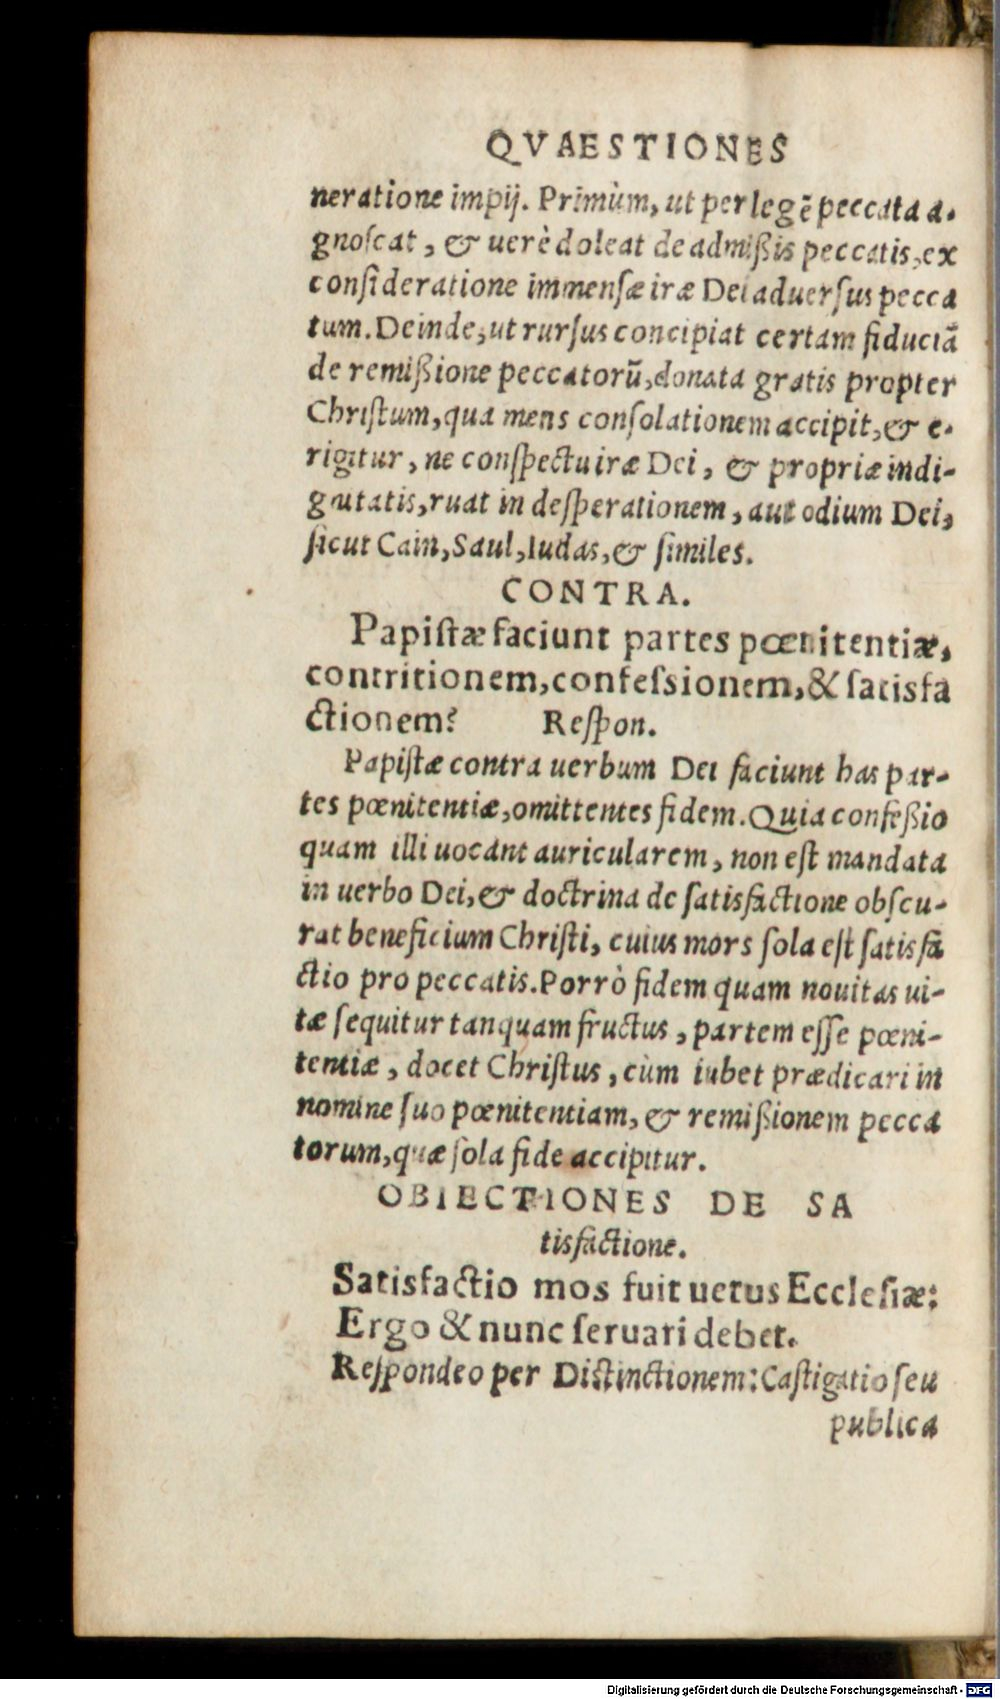 QVAESTIONES
neratione impij. Primùm, ut per legẽ peccata a-
gnoſcat, & uerè doleat de admißis peccatis, ex
conſideratione immenſæ iræ Dei aduerſus pecca
tum. Deinde, ut rurſus concipiat certam fiduciã
de remißione peccatorũ, donata gratis propter
Chriſtum, qua mens conſolationem accipit, & e-
rigitur, ne conſpectu iræ Dei, & propriæ indi-
gnitatis, ruat in deſperationem, aut odium Dei,
ſicut Cain, Saul, Iudas, & ſimiles.
CONTRA.
Papiſtæ faciunt partes pœnitentiæ,
contritionem, confeſsionem, & ſatisfa
ctionem? Reſpon.
Papiſtæ contra uerbum Dei faciunt has par-
tes pœnitentiæ, omittentes fidem. Quia confeßio
quam illi uocant auricularem, non eſt mandata
in uerbo Dei, & doctrina de ſatisfactione obſcu-
rat beneficium Chriſti, cuius mors ſola eſt ſatisfa
ctio pro peccatis. Porrò fidem quam nouitas ui-
tæ ſequitur tanquam fructus, partem eſſe pœni-
tentiæ, docet Chriſtus, cùm iubet prædicari in
nomine ſuo pœnitentiam, & remißionem pecca
torum, quæ ſola fide accipitur.
OBIECTIONES DE SA
tisfactione.
Satisfactio mos fuit uetus Eccleſiæ:
Ergo & nunc ſeruari debet.
Reſpondeo per Diſtinctionem: Caſtigatio ſeu
publica
Digitalisierung gefördert durch die Deutsche Forschungsgemeinschaft - DFG